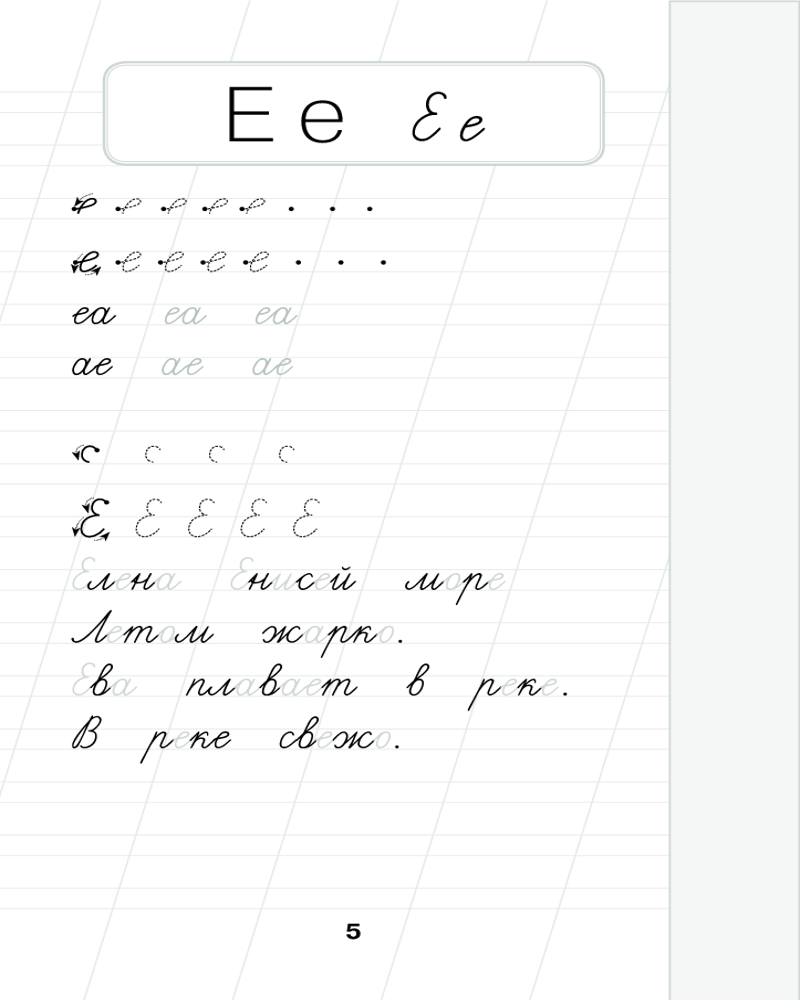 Е е Е е
е е е е е
е е е е е
еа еа еа
ае ае ае
с с с с
Е Е Е Е Е
Елена Енисей море
Летом жарко.
Ева плавает в реке.
В реке свежо.
5